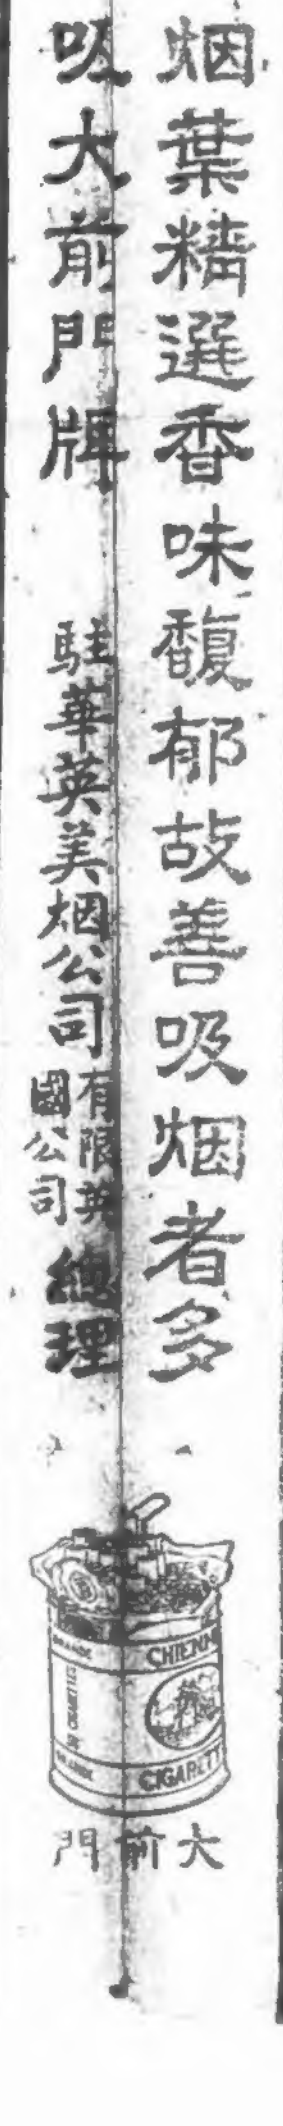 烟葉精選香味馥郁故善吸烟者多
吸大前門牌
駐華英美烟公司
有限英
國公司
總理
CHIENM
CIGARETT
大前門